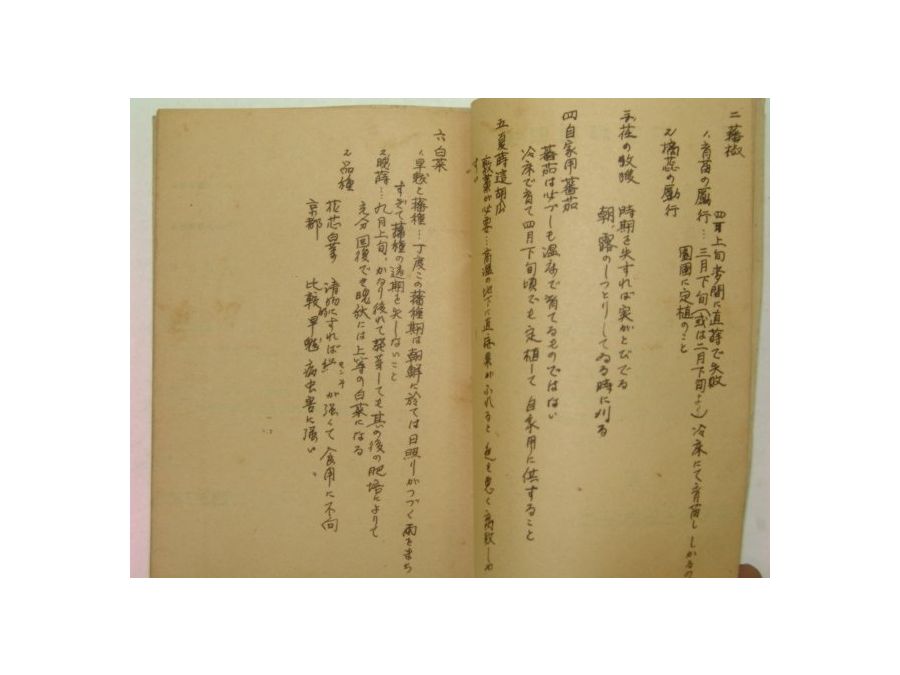 二 蕃椒
四月上旬畦間に直蒔で失敗
1、育苗の励行…三月下旬(或は二月下旬より)冷床にて育苗し しかるの
園圃に定植のこと
2 摘蕊の励行
三 荏の収穫
時期を失すれば実がとびでる
朝、露のしっとりしてゐる時に刈る
四 自家用蕃茄
蕃茄は必ずしも温床で育てるものではない
冷床で育て四月下旬頃でも定植して自家用に供すること
五 夏蒔這胡瓜
敷藁が必要…高温の地に直接果がふれると 色も悪く
六 白菜
1、早蒔と播種…丁度この播種期は朝鮮に於ては日照りがつづく雨をまち
すぎて播種の適期を失しないこと
2 晩蒔…九月上旬、かなり後れて発芽しても其の後の肥培によりて
充分回復でき晩秋には上等の白菜になる
3 品種
花芯白菜 すれば センイが強くて食用に不向
京都 比較早 病虫害に強い、